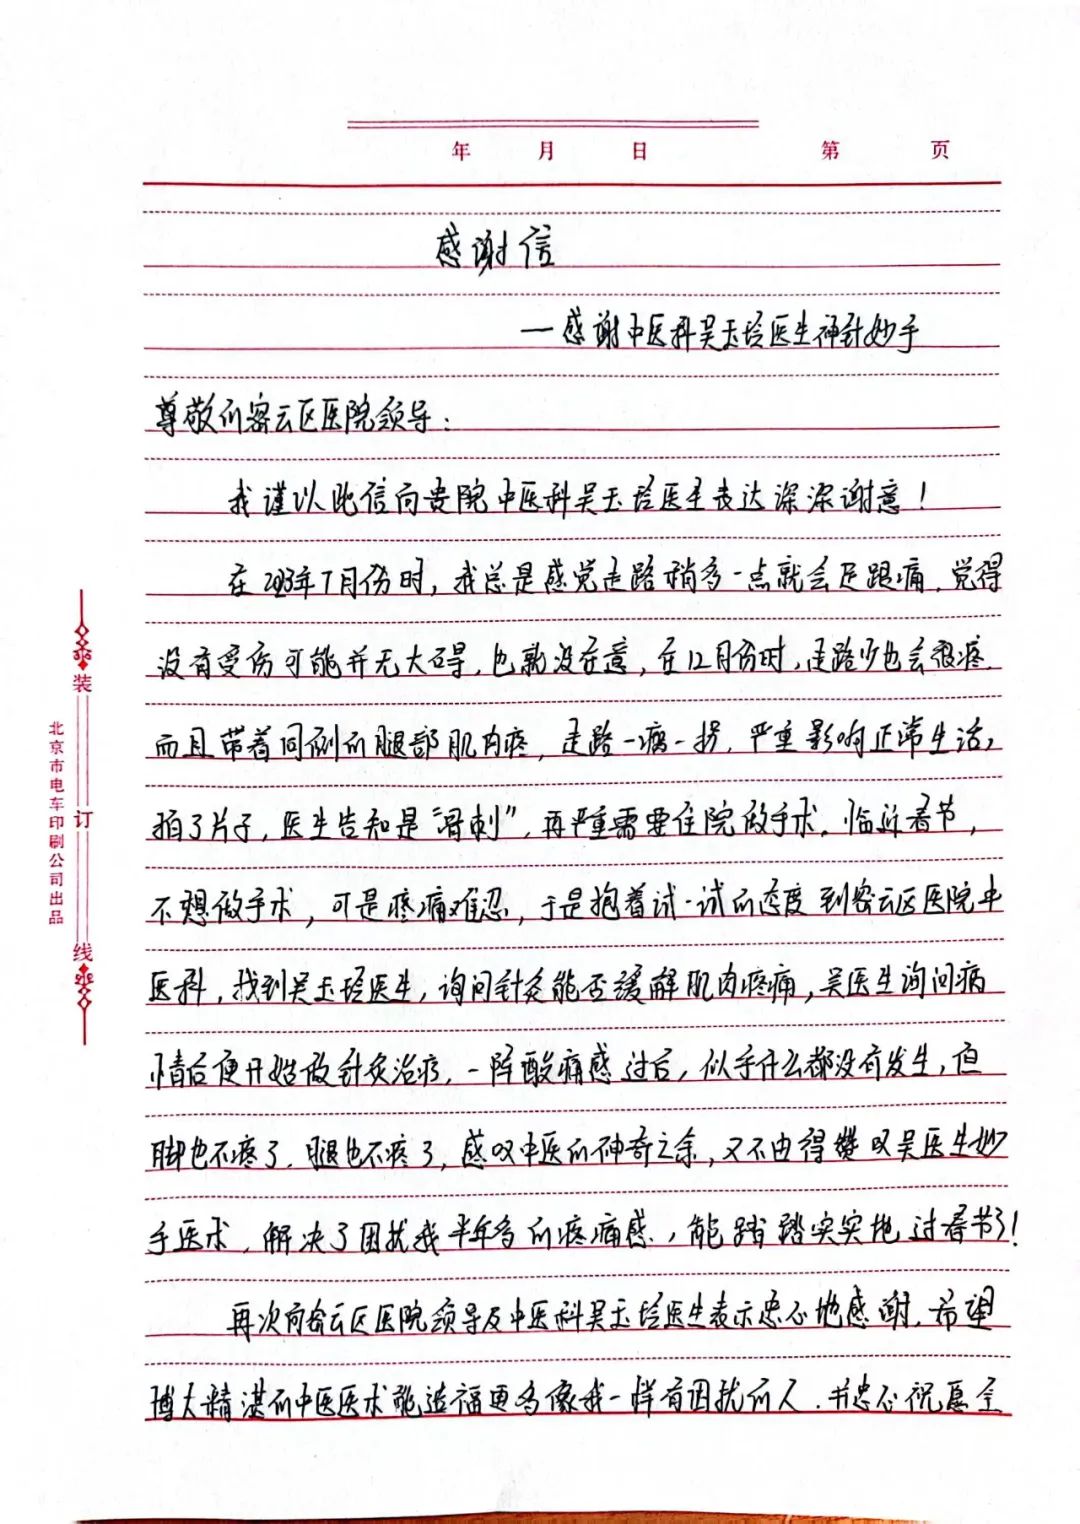 年 月 日 第 页
感谢信
—感谢中医科吴玉培医生神针妙手
尊敬的密云区医院领导:
我谨以此信向贵院中医科吴玉培医生表达深深谢意!
在2023年7月份时,我总是感觉走路稍多一点就会足跟痛,觉得
没有受伤可能并无大碍,也就没在意,在12月份时,走路少也会很疼,
而且带着同侧的腿部肌肉疼,走路一瘸一拐,严重影响正常生活,
拍了片子,医生告知是“骨刺”,再严重需要住院做手术。临近春节,
不想做手术,可是疼痛难忍,于是抱着试一试的态度到密云区医院中
医科,找到吴玉培医生,询问针灸能否缓解肌肉疼痛,吴医生询问病
情后便开始做针灸治疗,一阵酸痛感过后,似乎什么都没有发生,但
脚也不疼了,腿也不疼了,感叹中医的神奇之余,又不由得赞叹吴医生妙
手医术,解决了困扰我半年多的疼痛感,能踏踏实实地过春节了!
再次向密云区医院领导及中医科吴玉培医生表示忠心地感谢,希望
博大精湛的中医医术能造福更多像我一样有困扰的人,并忠心祝愿全
装订线
北京市电车印刷公司出品